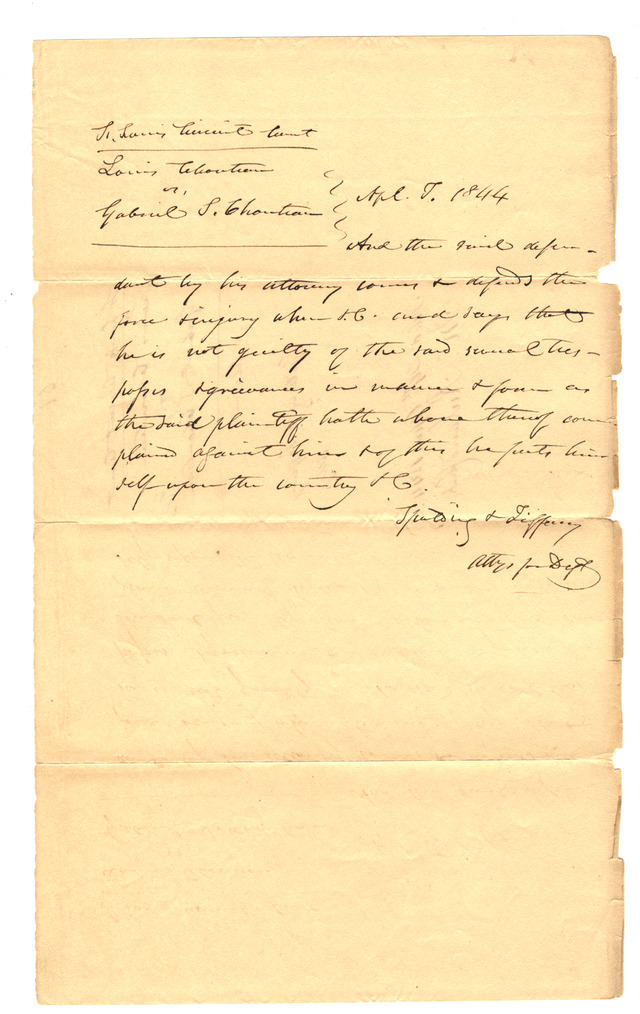 St. Louis Circuit Court
Louis Chouteau
vs,
Gabriel S. Chouteau
Apl. T. 1844
And the said defen-
dant by his attorney comes & defends the
force & injury when &C. and says that
he is not guilty of the said several tres-
passes & grievances in manner & form as
the said plaintiff hath above thereof com
plained against him & of this he puts him
self upon the country &C.
Spalding & Tiffany
Attys for Deft